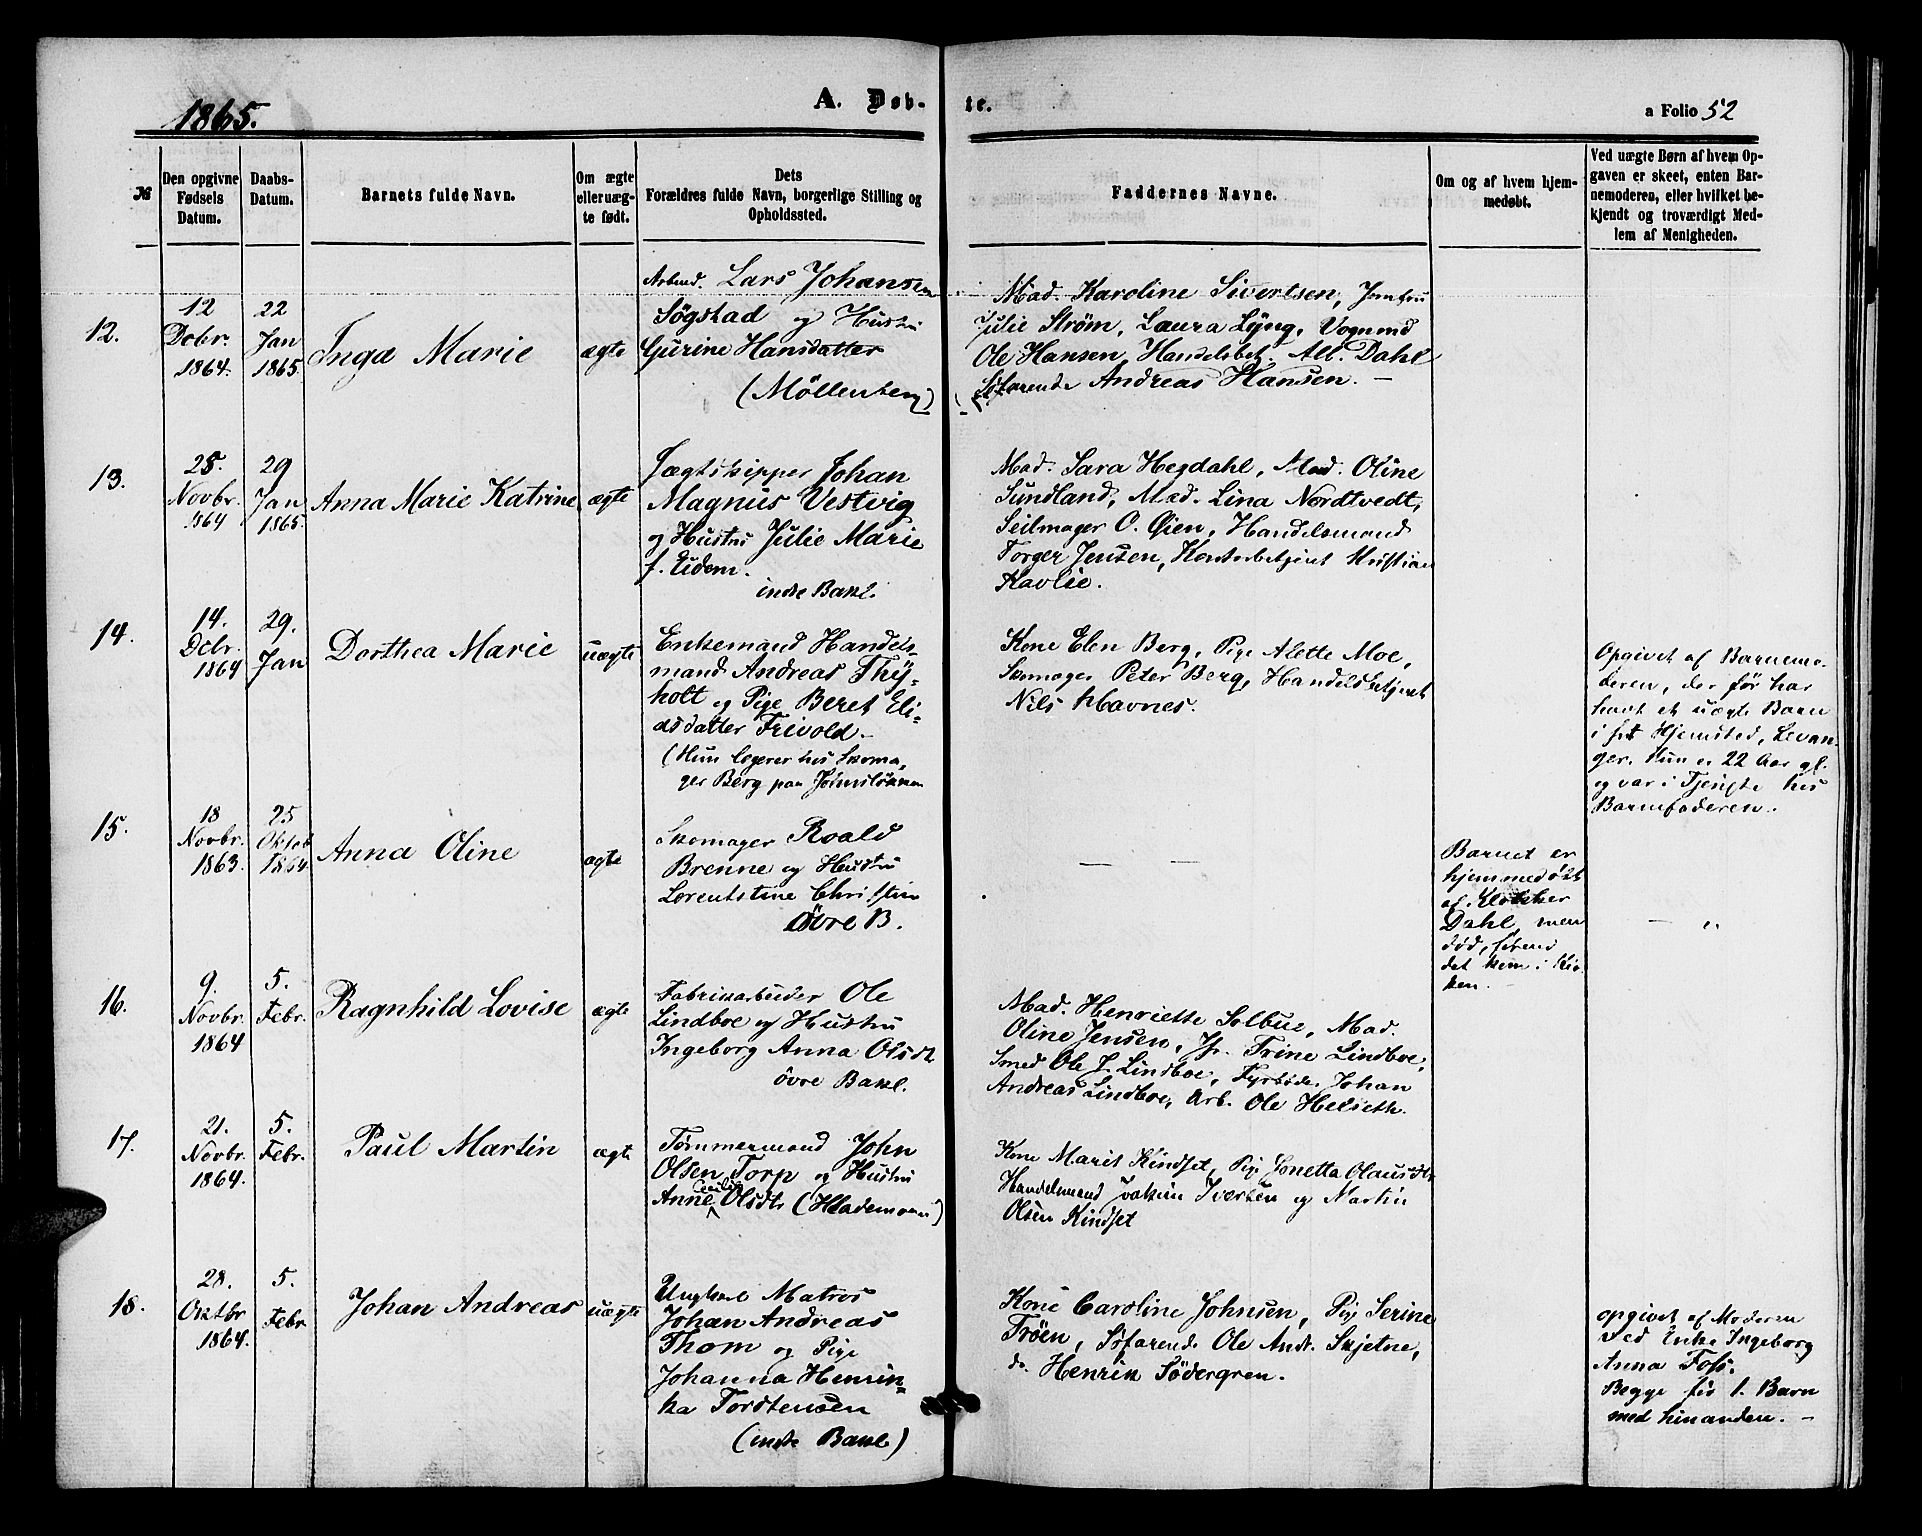 1865.
A. Døb-
te.
a Folio 52
№
Den opgivne
Fødsels
Datum.
Daabs-
Datum.
Barnets fulde Navn.
Om ægte
eller uæg-
te født.
Dets
Forældres fulde Navn, borgerlige Stilling og
Opholdssted.
Faddernes Navne.
Om og af hvem hjem-
medøbt.
Ved uægte Børn af hvem Op-
gaven er skeet, enten Bar-
nemoderen, eller hvilket be-
kjendt og troværdigt Med-
lem af Menigheden.
12.
12
Debr.
1864.
22
Jan
1865.
Inga Marie
ægte
Arbmd. Lars Johansen
Søgstad og Hustru
Gurine Hansdatter
(Möllenberg)
Mad. Karoline Sivertsen, Jomfru
Julie Strøm, Laura Lyng, Vognmd
Ole Hansen, Handelsbet. Alb. Dahl
Søfarende Andreas Hansen. —
13.
25.
Novbr.
1864
29
Jan
1865.
Anna Marie Katrine
ægte
Jægtskipper Johan
Magnus Vestvig
og Hustru Julie Marie
f. Eidem.
indre Bakl.
Mad. Sara Hegdahl, Mad. Oline
Sundland, Mad. Lina Nordtvedt,
Seilmager O. Øien, Handelsmand
Torger Jensen, Kontorbetjent Kristian
Kavlie.
14.
14.
Debr.
1864
29.
Jan
Dorthea Marie
uægte
Enkemand Handels-
mand Andreas Thy-
holt og Pige Beret Eli-
asdatter Trivold. —
(Hun logerer hos Skoma-
ger Berg paa
Kone Elen Berg, Pige Alette Moe,
Skomager Peter Berg, Handelsbetjent
Nils Havnes.
Opgivet af Barnemo-
deren, der før har
havt et uægte Barn
i sit Hjemsted, Levan-
ger. Hun er 22 Aar gl.
og var i Tjeneste hos
Barnefaderen.
15.
18
Novbr.
1863.
25
Oktob
1864
Anna Oline
ægte
Skomager Roald
Brenne og Hustru
Lorentstine Christin
Øvre B.
— —
Barnet er
hjemmedøbt
af Klokker
Dahl, men
død, førend
det kom i Kir-
ken. —
— "
16.
9.
Novbr.
1864
5.
Febr.
Ragnhild Lovise
ægte
Fabrikarbeider Ole
Lindboe og Hustru
Ingeborg Anna Olsdt.
øvre Bakl.
Mad. Henriette Solbue, Mad.
Oline Jensen, Jfr. Trine Lindboe,
Smed Ole J. Lindboe, Fyrbøder Johan
Andreas Lindboe, Arb. Ole Helseth.
17.
21.
Novbr.
1864.
5.
Febr.
Paul Martin
ægte
Tømmermand John
Olsen Torp og Hustru
Anne Cecilie Olsdt.
Kone Marit Kindset, Pige Jonetta Olausdtr
Handelsmand Joakim Iversen og Martin
Olsen Kindset
18.
28.
Oktbr
1864.
5.
Febr
Johan Andreas
uægte
Ungkarl Matros
Johan Andreas
Thom og Pige
Johanna Henrik-
ka Tordtensen
(indre Bakl.)
Kone Caroline Johnsen, Pige Serine
Trøen, Søfarende Ole Andr. Skjetne,
do. Henrik Södergren.
opgivet af Moderen
ved Enke Ingeborg
Anna Foss.
Begge sis 1. Barn
med hinanden. —